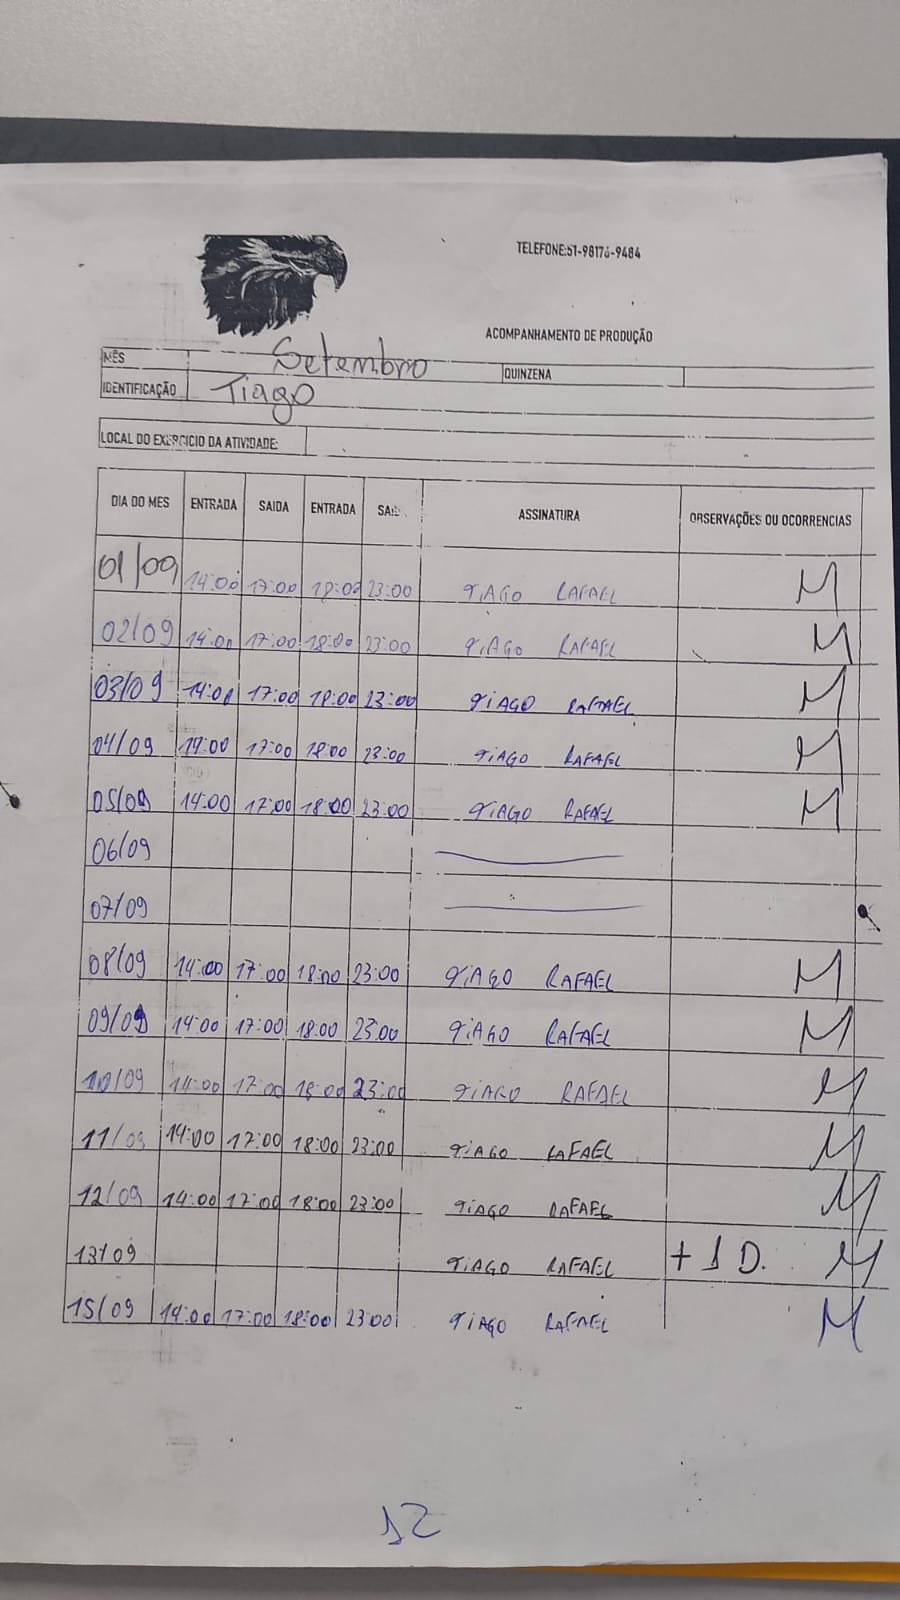 TELEFONE:51-98176-9484
ACOMPANHAMENTO DE PRODUÇÃO
MÊS Setembro QUINZENA
IDENTIFICAÇÃO Tiago
LOCAL DO EXERCICIO DA ATIVIDADE:
DIA DO MES ENTRADA SAIDA ENTRADA SAI ASSINATURA OBSERVAÇÕES OU OCORRENCIAS
01/09 14:00 17:00 18:00 23:00 TiAGO RAFAEL M
02/09 14:00 17:00 18:00 23:00 TiAGO RAFAEL M
03/09 14:00 17:00 18:00 23:00 TiAGO RAFAEL M
04/09 14:00 17:00 18:00 23:00 TiAGO RAFAEL M
05/09 14:00 17:00 18:00 23:00 TiAGO RAFAEL M
06/09
07/09
08/09 14:00 17:00 18:00 23:00 TiAGO RAFAEL M
09/09 14:00 17:00 18:00 23:00 TiAGO RAFAEL M
10/09 14:00 17:00 18:00 23:00 TiAGO RAFAEL M
11/09 14:00 17:00 18:00 23:00 TiAGO RAFAEL M
12/09 14:00 17:00 18:00 23:00 TiAGO RAFAEL M
13/09 TiAGO RAFAEL + 1 D. M
15/09 14:00 17:00 18:00 23:00 TiAGO RAFAEL M
12